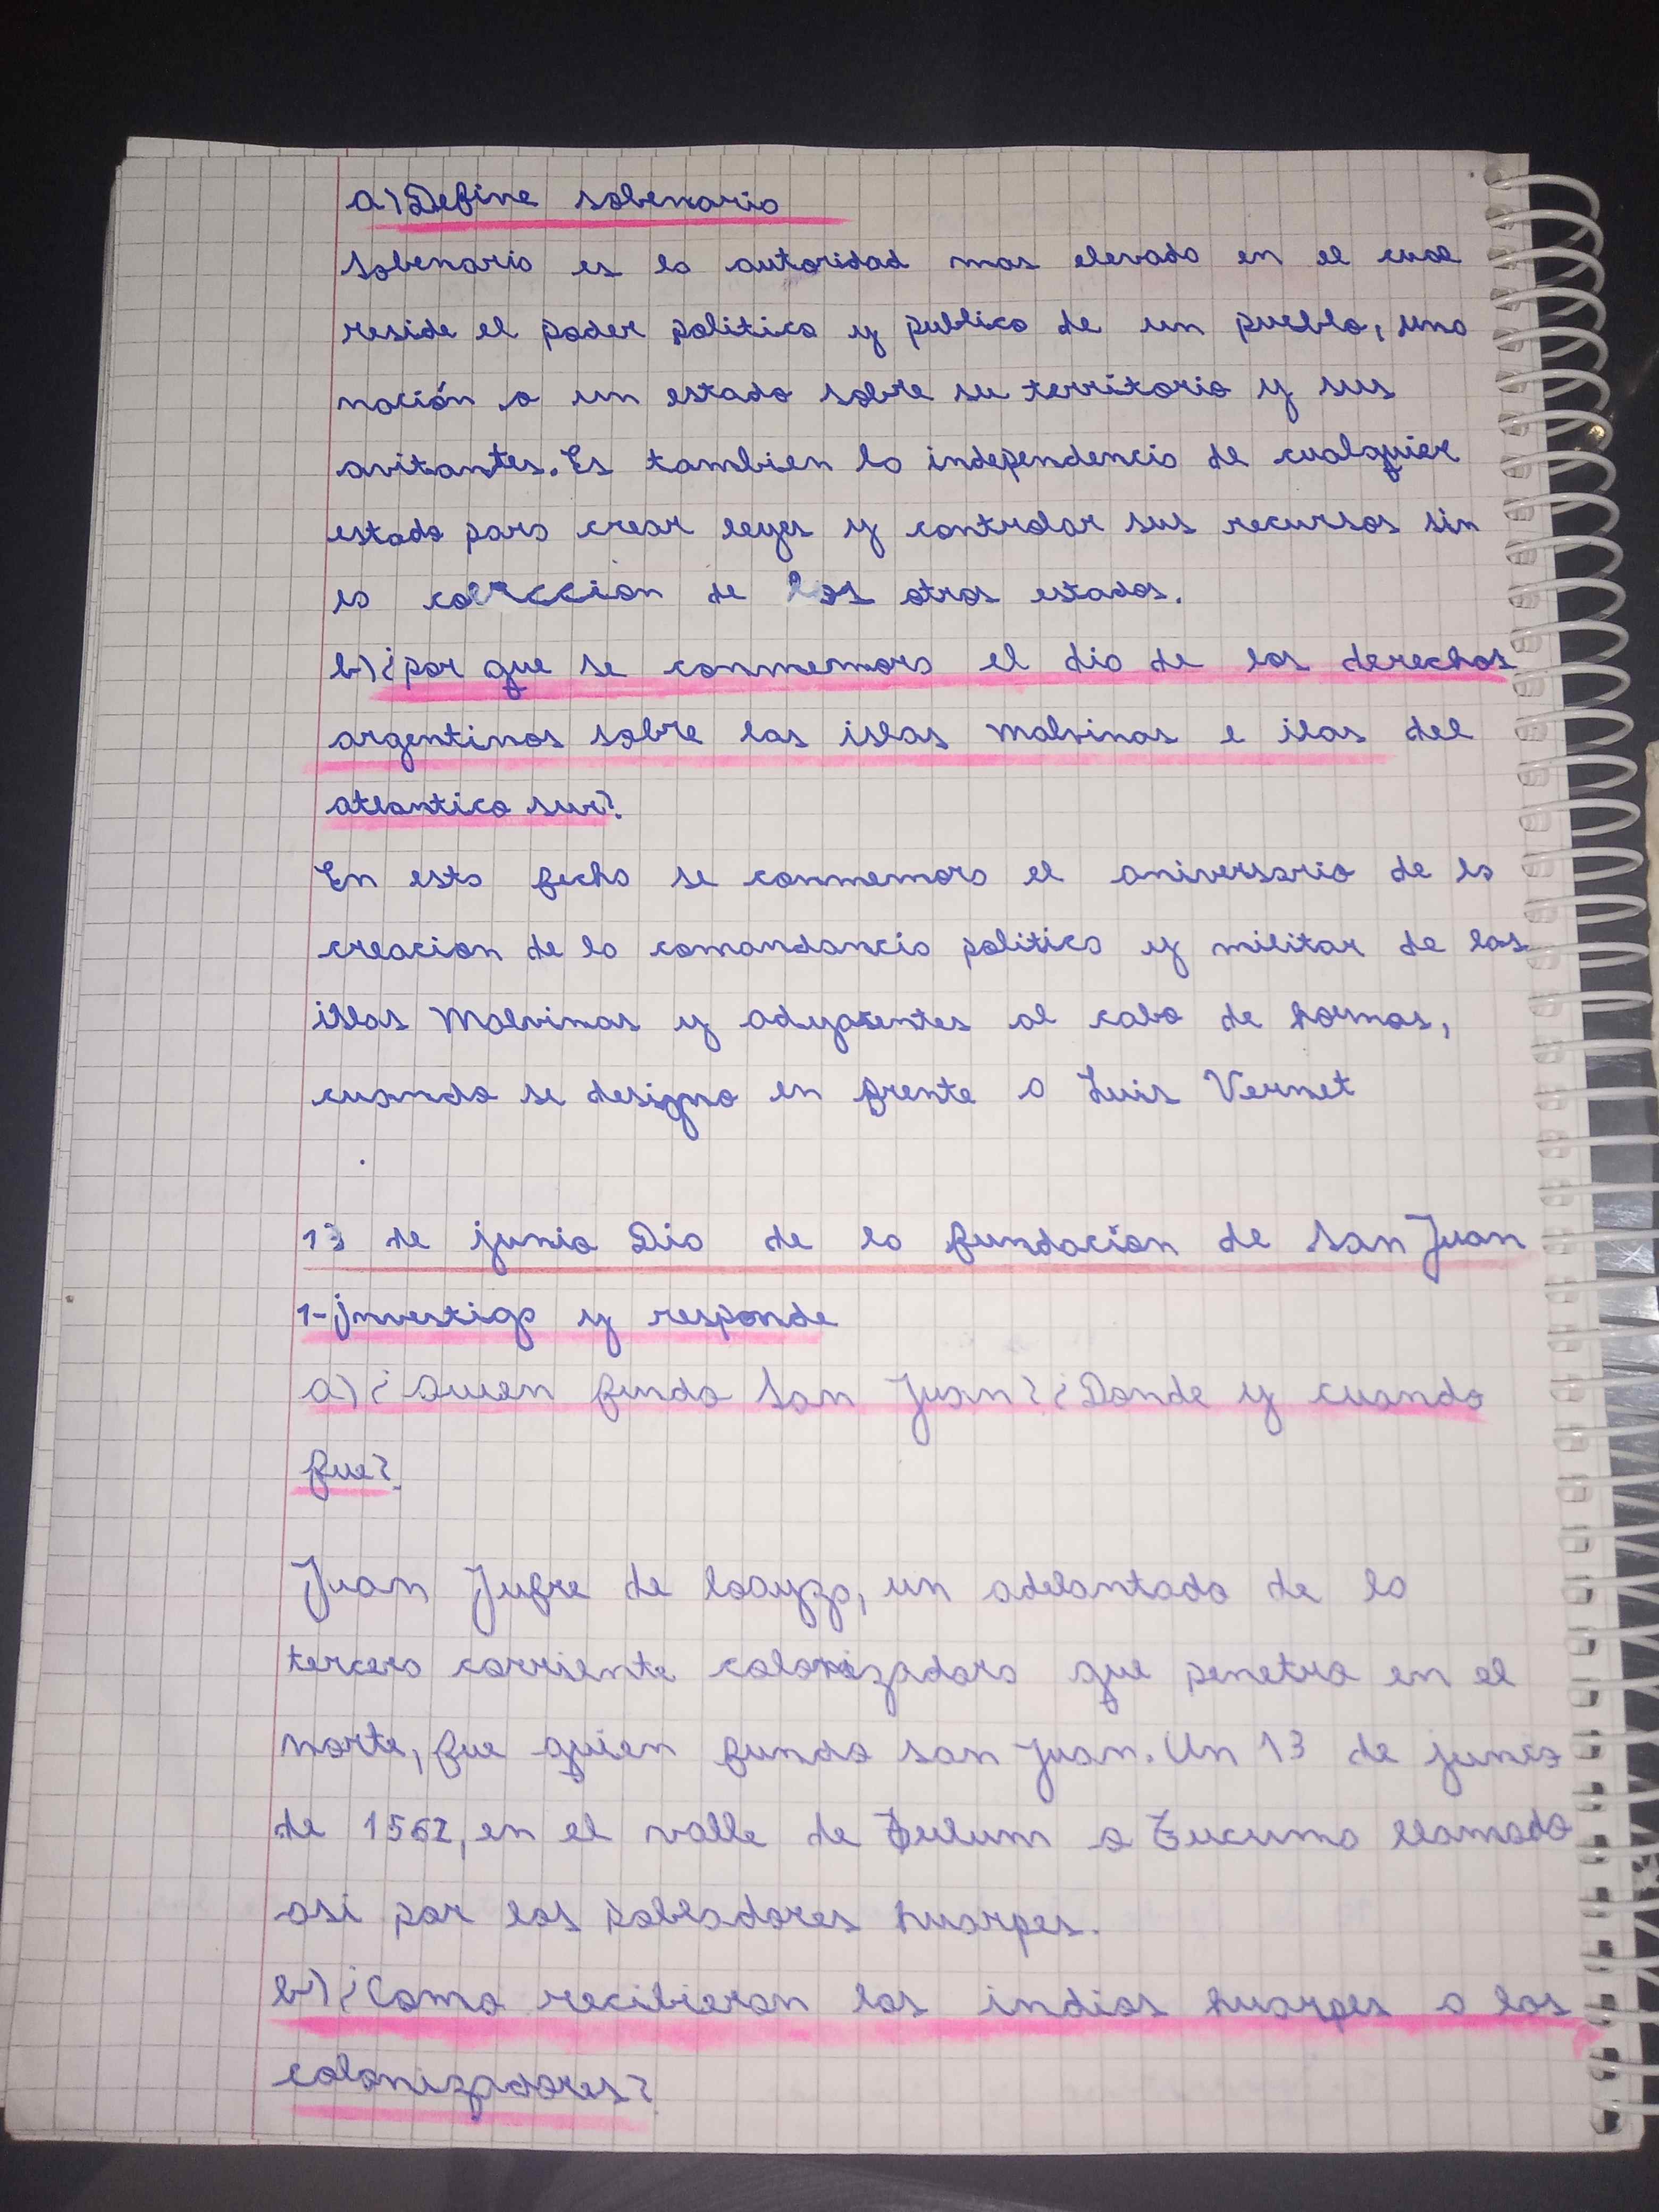 a) Define sobenario
Sobenario es la autoridad mas elevada en el cual
reside el poder politico y publico de un pueblo, una
nación o un estado sobre su territorio y sus
avitantes. Es tambien la independencia de cualquier
estado para crear leyes y controlar sus recursos sin
la coercción de los otros estados.
b) ¿por que se conmemora el dia de los derechos
argentinos sobre las islas malvinas e ilas del
atlantico sur?
En esta fecha se conmemora el aniversario de la
creacion de la comandancia politica y militar de las
islas Malvinas y adyasentes al cabo de hornos,
cuando se designo en frente a Luis Vernet
13 de junio Dia de la fundación de San Juan
1- investigo y responde
a) ¿Quien fundo San Juan? ¿Donde y cuando
fue?
Juan Jufre de loayza, un adelantado de la
tercera corriente colonizadora que penetra en el
norte, fue quien fundo san juan. Un 13 de junio
de 1562, en el valle de Tulum o Tucuma llamado
asi por los pobladores huarpes.
b) ¿Como recibieron los indios huarpes a los
colonizadores?